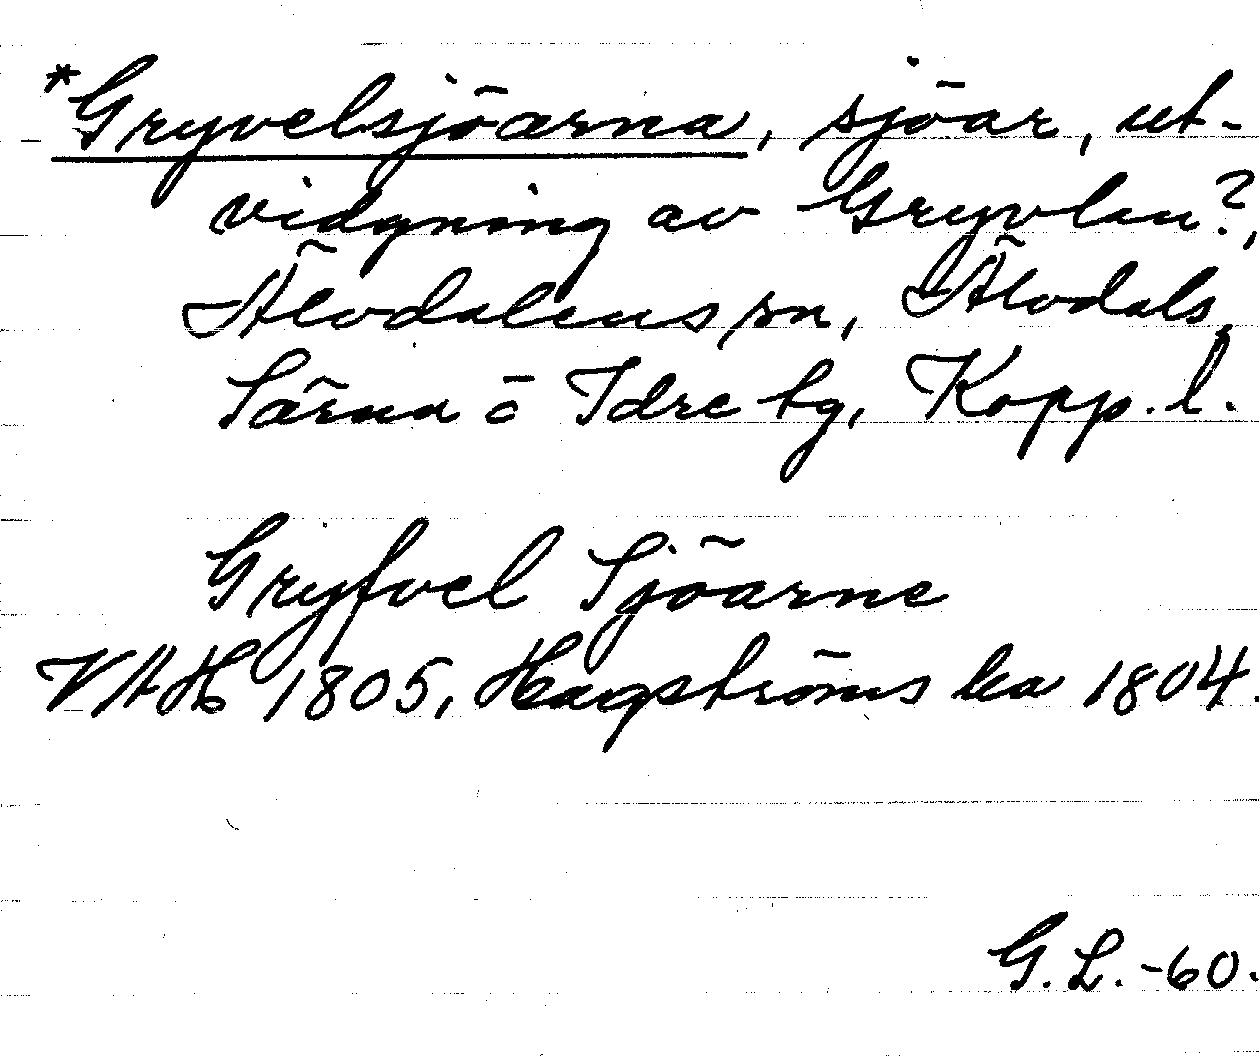 *Gryvelsjöarna, sjöar, ut-
vidgning av Gryvlan?,
Älvdalens sn, Älvdals,
Särna o Idre tg, Kopp. l.
Gryfvel Sjöarne
VAH 1805, Hagströms ka 1804.
G.L.-60.